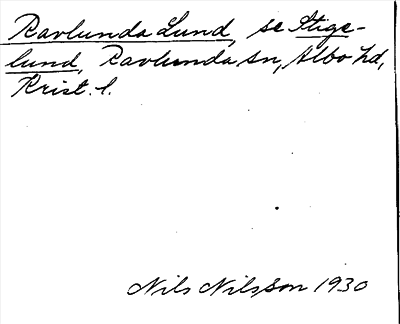 Ravlunda Lund, se Stige-
lund, Ravlunda sn, Albo hd,
Krist. l.
Nils Nilsson 1930